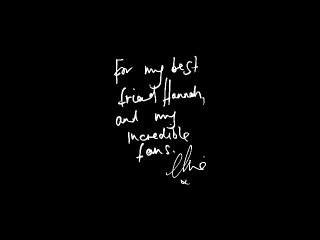 For my best
friend Hannah,
and my
incredible
fans.
x